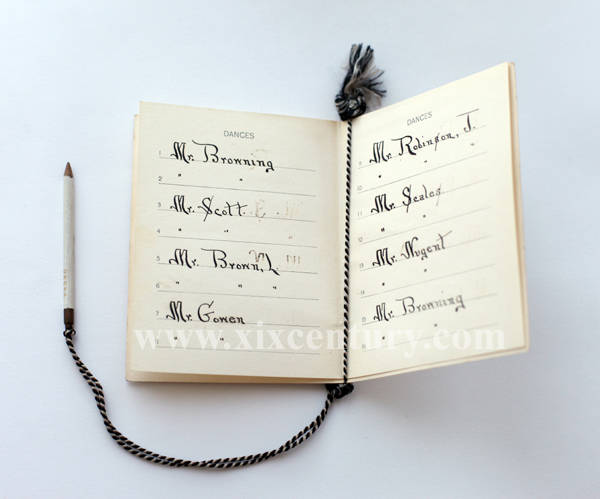 DANCES
1 Mr. Browning
2 " "
3 Mr. Scott
4 " " "
5 Mr. Brown, L.
6 " " "
7 Mr. Gowen
8 " "
DANCES
9 Mr. Robinson, J.
10 " "
11 Mr. Scales
12 " "
13 Mr. Nugent
14 " "
15 Mr. Browning
16 " "
www.xixcentury.com